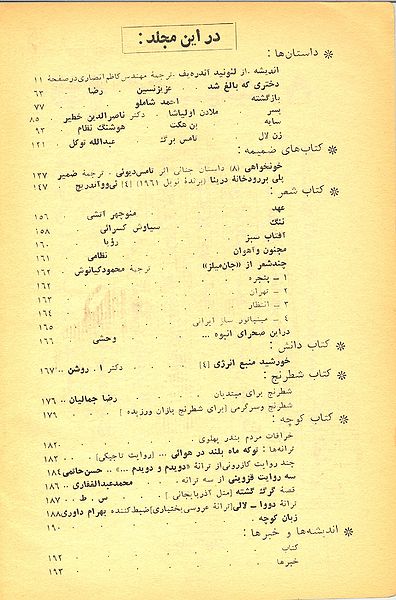 در این مجلد :
* داستان‌ها :
اندیشه . از لئونید اندره‌یف . ترجمهٔ مهندس کاظم انصاری در صفحهٔ ۱۱
دختری که بالغ شد . عزیز نسین . رضا . ۶۳
بازگشته . احمد شاملو . ۷۷
پسر . ملادن اولیاشا . دکتر ناصرالدین خطیر . ۸۵
سایه . بن هکت . هوشنگ نظام . ۹۳
زن لال . تامس برگ . عبدالله توکل . ۱۲۱
* کتاب‌های ضمیمه :
خونخواهی (۸) داستان جنائی اثر تامس دیوئی . ترجمهٔ ضمیر ۱۳۷
پلی بر رودخانهٔ درینا (برندهٔ نوبل ۱۹۶۱) [۴] ئی‌وو آندریچ . ۱۴۷
* کتاب شعر :
عهد . منوچهر آتشی . ۱۵۶
ننگ . سیاوش کسرائی . ۱۵۸
آفتاب سبز . رؤیا . ۱۶۰
مجنون و آهوان . نظامی . ۱۶۱
چند شعر از «جان‌میلز» . ترجمهٔ محمود کیانوش . ۱۶۲
۱ ــ پنجره . ۱۶۲
۲ ــ تهران . ۱۶۳
۳ ــ انتظار . ۱۶۴
۴ ــ مینیاتور ساز ایرانی . ۱۶۵
در این صحرای انبوه ... . وحشی . ۱۶۶
* کتاب دانش :
خورشید منبع انرژی [۴] . دکتر ا . روشن .. ۱۶۷
* کتاب شطرنج :
شطرنج برای مبتدیان . رضا جمالیان .. ۱۷۶
شطرنج و سرگرمی [برای شطرنج بازان ورزیده] . ۱۷۹
* کتاب کوچه :
خرافات مردم بندر پهلوی . ۱۸۲
ترانه‌ها : توکه ماه بلند در هوائی ... [روایت تاجیکی] . ۱۸۳
چند روایت کازرونی از ترانهٔ «دویدم و دویدم ...» .. حسن حاتمی ۱۸۴
سه روایت قزوینی از سه ترانه . محمد عبدالغفاری .. ۱۸۶
قصهٔ گرگ گشته [متل آذربایجانی] . س . ط . ۱۸۷
ترانهٔ دووا ــ لالی [ترانهٔ عروسی بختیاری] ضبط کننده بهرام داوری ۱۸۸
زبان کوچه . ۱۹۰
* اندیشه‌ها و خبرها :
کتاب . ۱۹۲
خبرها . ۱۹۳